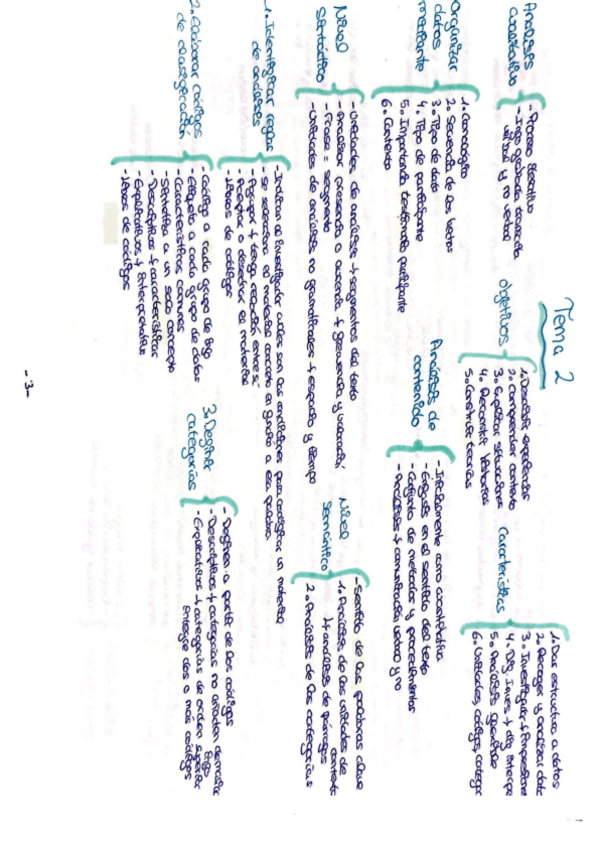 Tema 2
Análisis
cualitativo
- Proceso iterativo
- Info grabada, transcrita
verbal y no verbal
objetivos
1. Describir experiencias
2. Comprender contexto
3. Explicar situaciones
4. Reconstruir historias
5. Construir teorías
Características
1. Dar estructura a datos
2. Recoger y analizar dato
3. Investigador + impresione
4. Dif. inves + dif interpe
5. Análisis
6. Unidades, códigos, categor
Organizar
datos
mediante
1. Cronológico
2. Secuencia de los hechos
3. Tipo de dato
4. Tipo de participante
5. Importancia testimonio participante
6. Contexto
Análisis de
contenido
- Inicialmente como cuantitativo
- Énfasis en el sentido del texto
- Conjunto de métodos y procedimientos
- Análisis + comunicación verbal y no
Nivel
Sintáctico
- Unidades de análisis + segmentos del texto
- Analizar presencia o ausencia + frecuencia y valoración
- Frase = segmento
- Unidades de análisis no gramaticales + espacio y tiempo
Nivel
semántico
- Sentido de las palabras clave
1. Análisis de las unidades de
contexto
análisis de párrafos
2. Análisis de las categorías
1. Identificar reglas
de análisis
- Indican al investigador cuáles son las condiciones para codificar un material
- Se selecciona el material concreto en función a esa palabra
- Aceptar o desechar el material
- Libros de códigos
2. Elaborar códigos
de clasificación
- Código a cada grupo de
- Etiqueta a cada grupo de datos
- Características comunes
- Sintetiza a un solo concepto
- Descriptivos + características
- Explicativos + interpretativo
- Libros de códigos
3. Definir
categorías
- Definen a partir de los códigos
- Descriptivas + categorías no añaden demasiada
info
- Explicativas + categorías de orden superior
integra dos o más códigos
- 3 -